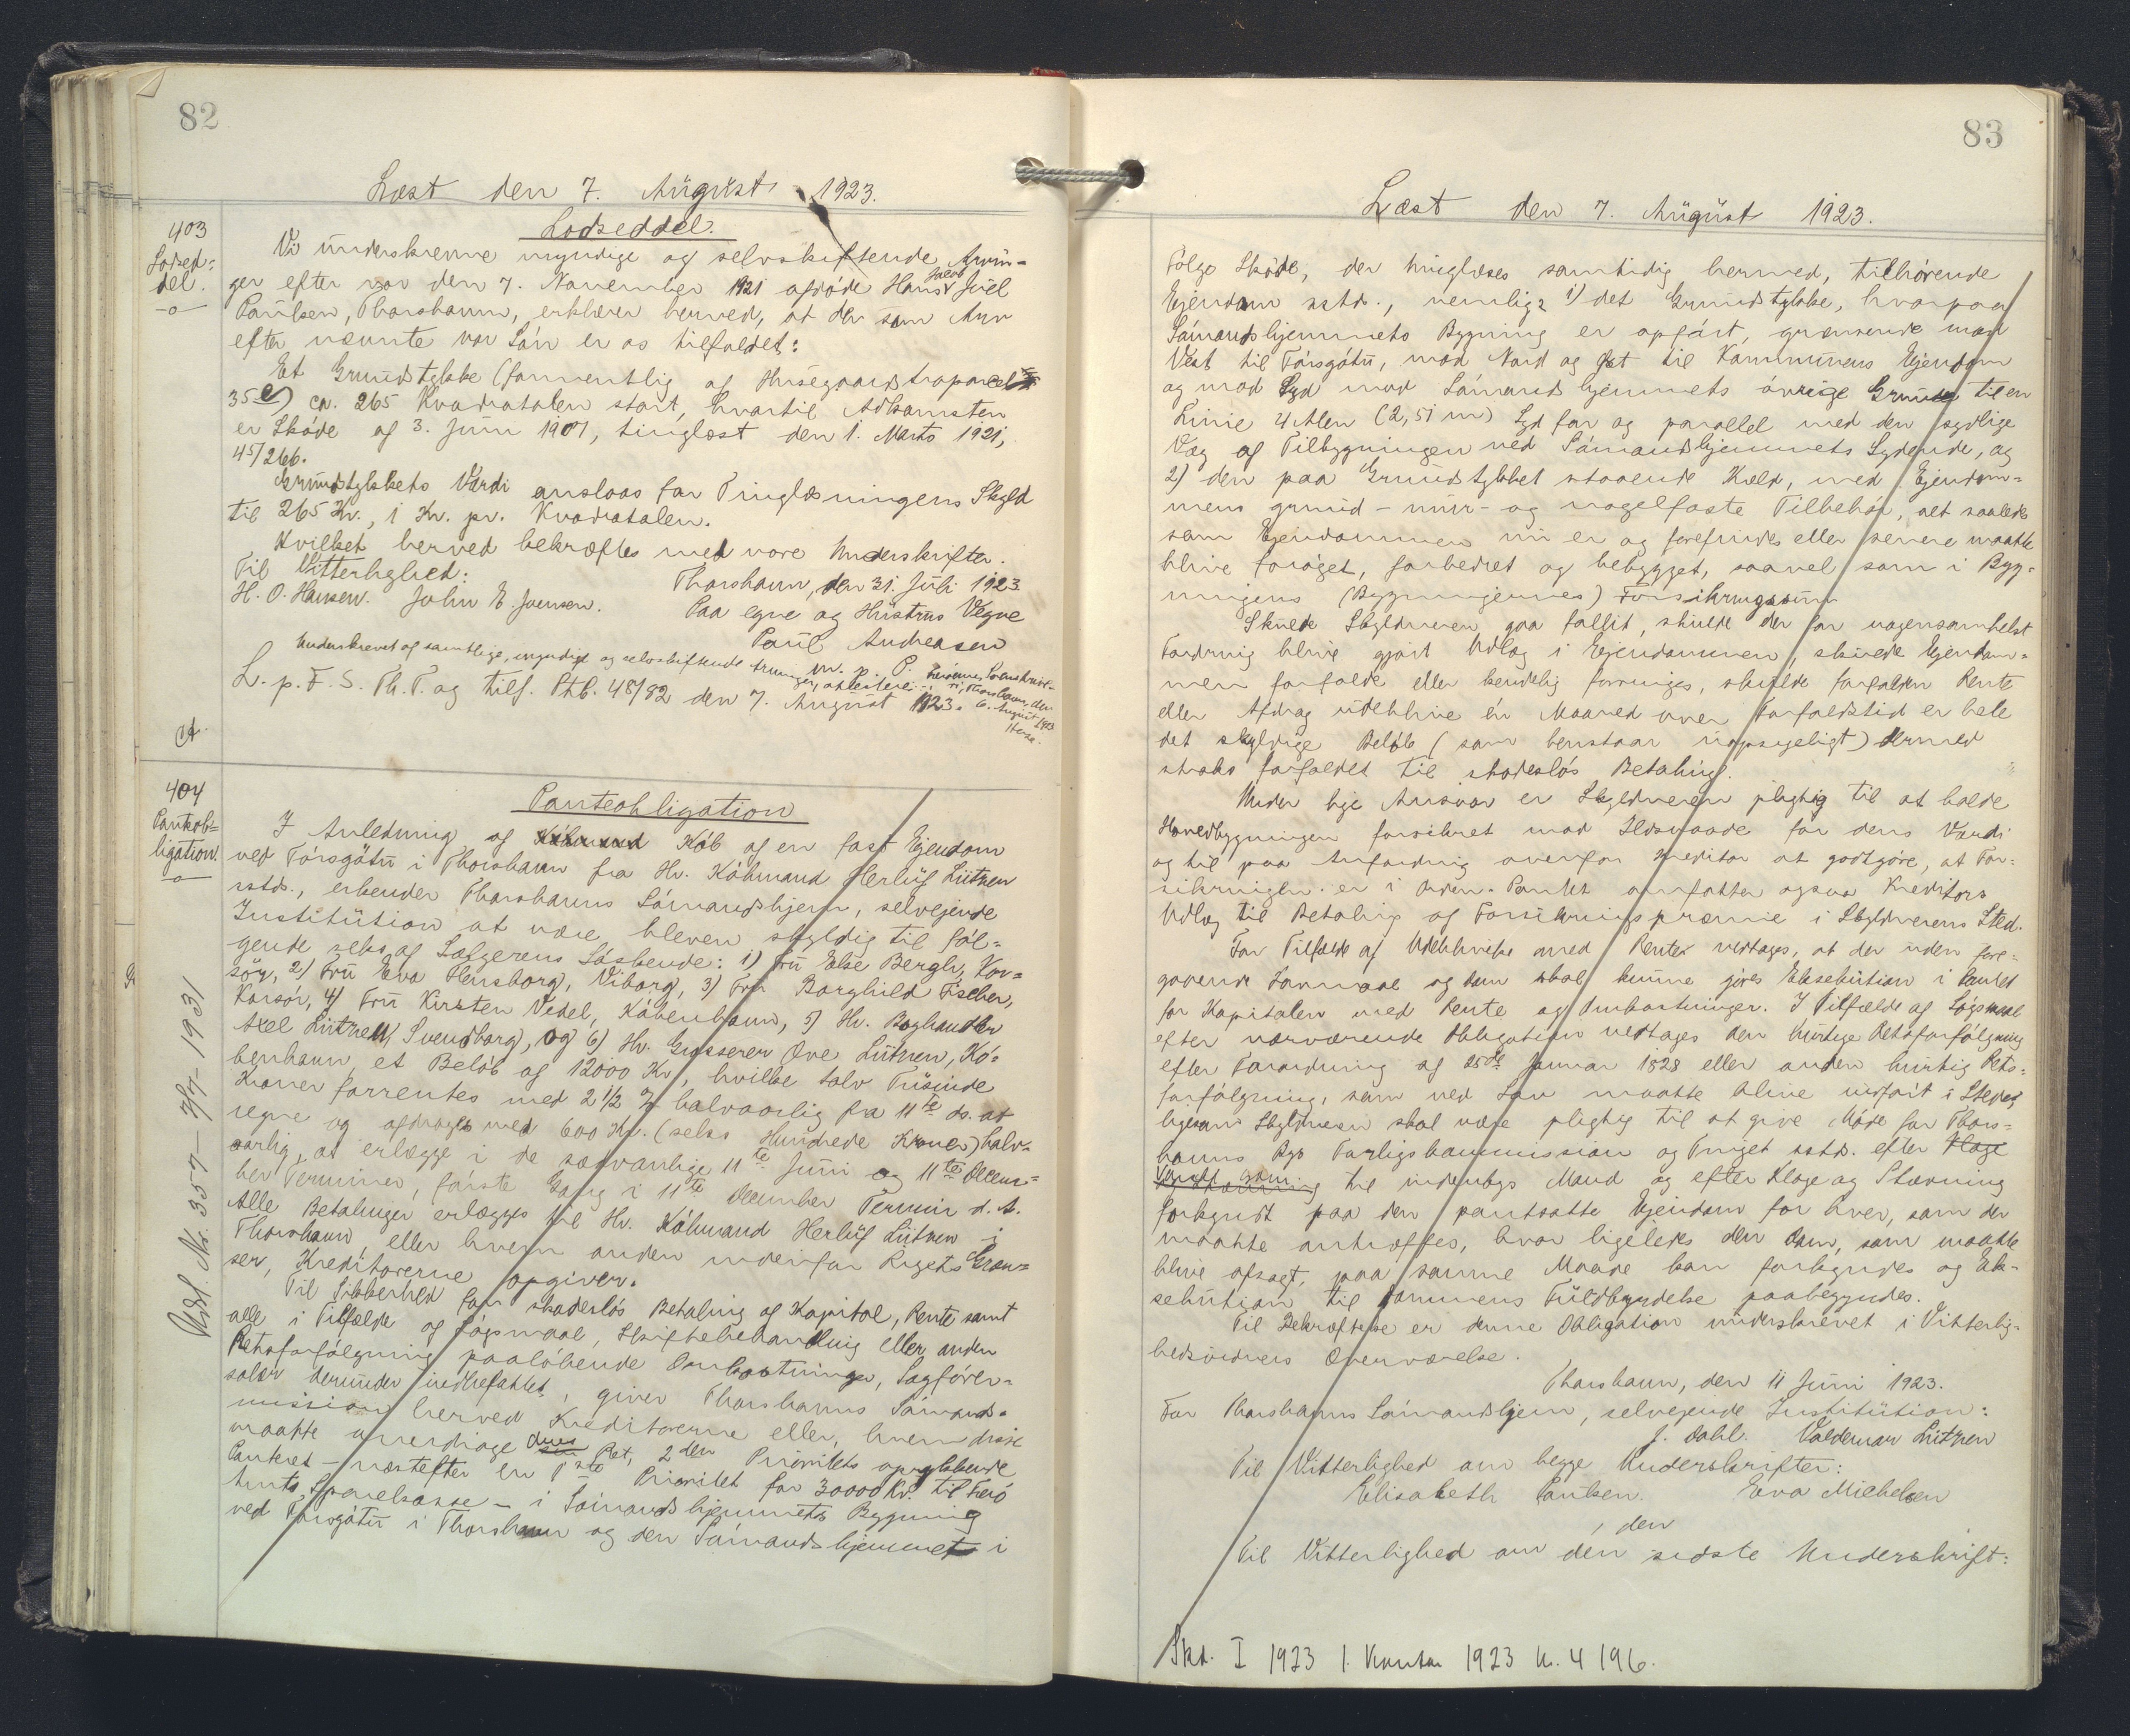 82
Læst den 7. August 1923.
403
Lodsed-
del.
Lodseddel.
Vi underskrevne myndige og selvskiftende Arvin-
ger efter vor den 7. November 1921 afdøde Hans Jacob Juel
Paulsen, Thorshavn, erklærer herved, at der som Arv
efter nævnte vor Fader er os tilfaldet:
Et Grundstykke (formentlig af Husegaardstroparcel
35 e) ca. 265 Kvadratalen stort, hvortil Adkomsten
er Skøde af 3. Juni 1907, tinglæst den 1. Marts 1921,
45/266.
Grundstykkets Værdi ansloas for Tinglæsningens Skyld
til 265 Kr., 1 Kr. pr. Kvadratalen.
Hvilket herved bekræftes med vore Underskrifter.
Til Vitterlighed:
Thorshavn, den 31. Juli 1923
H. O. Hansen. John E. Joensen.
Paa egne og Hustrus Vegne
Paul Andreasen
Underskrevet af samtlige, myndige og selvskiftende Arvinger, attesterer
Thorshavn, den
6. August 1923
L. p. F. S. Th. T. og tilf. Ptb. 48/82 den 7. August 1923.
404
Pantob-
ligation.
Panteobligation
I Anledning af Køb af en fast Ejendom
ved Tórsgøtu i Thorshavn fra Hr. Købmand Herluf Lützen
sstds., erkender Thorshavns Sømandshjem, selvejende
Institution at være bleven skyldig til føl-
gende seks af Sælgerens Søskende: 1) Fru Else Bergh, Kor-
sør, 2) Fru Eva Flensborg, Viborg, 3) Fru Borghild Fischer,
Korsør, 4) Fru Kirsten Vedel, København, 5) Hr. Boghandler
Axel Lützen, Svendborg, og 6) Hr. Grosserer Ove Lützen, Kø-
benhavn, et Beløb af 12000 Kr., hvilke tolv Tusinde
Kroner forrentes med 2 1/2 % halvaarlig fra 11te ds. at
regne og afdrages med 600 Kr. (seks Hundrede Kroner) halv-
aarlig, at erlægge i de sædvanlige 11te Juni og 11te Decem-
ber Terminer, første Gang i 11te December Termin d. A.
Alle Betalinger erlægges til Hr. Købmand Herluf Lützen i
Thorshavn, eller hvem anden indenfor Rigets Græn-
ser, Kreditorerne opgiver.
Til Sikkerhed for skadesløs Betaling af Kapital, Rente samt
alle i Tilfælde af Søgsmaal, Skiftebehandling eller anden
Retsforfølgning paaløbende Omkostninger, Sagfører-
salær herunder indbefattet, giver Thorshavns Sømands-
mission herved Kreditorerne eller, hvem disse
maatte overdrage deres Ret, 2den Prioritets oprykkende
Panteret – næstefter en 1ste Prioritet for 30000 Kr. til Færø
Amts Sparekasse – i Sømandshjemmets Bygning
ved Tórsgøtu i Thorshavn og den Sømandshjemmet i
Udsl. Nr. 357 – 7/7 – 1931
83
Læst den 7. August 1923.
Følge Skøde, der tinglæses samtidig hermed, tilhørende
Ejendom sstds., nemlig: 1) det Grundstykke, hvorpaa
Sømandshjemmets Bygning er opført, grænsende mod
Vest til Tórsgøtu, mod Nord og Øst til Kommunens Ejendom
og mod Syd mod Sømandshjemmets øvrige Grund til en
Linie 4 Alen (2,51 m) Syd for og parallel med den sydlige
Væg af Tilbygningen ved Sømandshjemmets Sydende, og
2) den paa Grundstykket staaende Kæld, med Ejendom-
mens grund- mur- og nagelfaste Tilbehør, alt saaledes
som Ejendommen nu er og forefindes eller senere maatte
blive forøget, forbedret og bebygget, saavel som i Byg-
ningens (Bygningernes) Forsikringssum
Skulde Skyldneren gaa fallit, skulde der for nogensomhelst
Fordring blive gjort Udlæg i Ejendommen, skulde Ejendom-
men forfalde eller kendelig forringes, skulde forfalden Rente
eller Afdrag udeblive én Maaned over Forfaldstid er hele
det skyldige Beløb (som henstaar uopsigeligt) dermed
straks forfaldet til skadesløs Betaling.
Under lige Ansvar er Skyldneren pligtig til at holde
Hovedbygningen forsikret mod Ildsvaade for dens Værdi
og til paa Anfordring overfor Kreditor at godtgøre, at For-
sikringen er i Orden. Pantet omfatter ogsaa Kreditors
Udlæg til Betaling af Forsikringspræmie i Skyldnerens Sted.
For Tilfælde af Udeblivelse med Renter vedtages, at der uden fore-
gaaende Lovmaal og Dom skal kunne gøres Eksekution i Pantet
for Kapitalen med Rente og Omkostninger. I Tilfælde af Søgsmaal
efter nærværende Obligation vedtages den hurtige Retsforfølgning
efter Forordning af 25de Januar 1828 eller anden hurtig Rets-
forfølgning, som ved Lov maatte blive indført i Stedet,
ligesom Skyldneren skal være pligtig til at give Møde for Thors-
havns Bys Forligskommission og Tinget sstds. efter Klage
Varsel som til indenbys Mand og efter Klage og Stævning
forkyndt paa den pantsatte Ejendom for hver, som der
maatte antræffes, hvor ligeledes den Dom, som maatte
blive afsagt, paa samme Maade kan forkyndes og Ek-
sekution til Dommens Fuldbyrdelse paabegyndes.
Til Bekræftelse er denne Obligation underskrevet i Vitterlig-
hedsvidners Overværelse.
Thorshavn, den 11 Juni 1923.
For Thorshavns Sømandshjem, selvejende Institution:
J. Dahl. Valdemar Lützen
Til Vitterlighed om begge Underskrifter:
Elisabeth Paulsen. Eva Michelsen
, den
Til Vitterlighed om den sidste Underskrift:
Skt. I 1923 1. Kvartal 1923 N. 4 196.